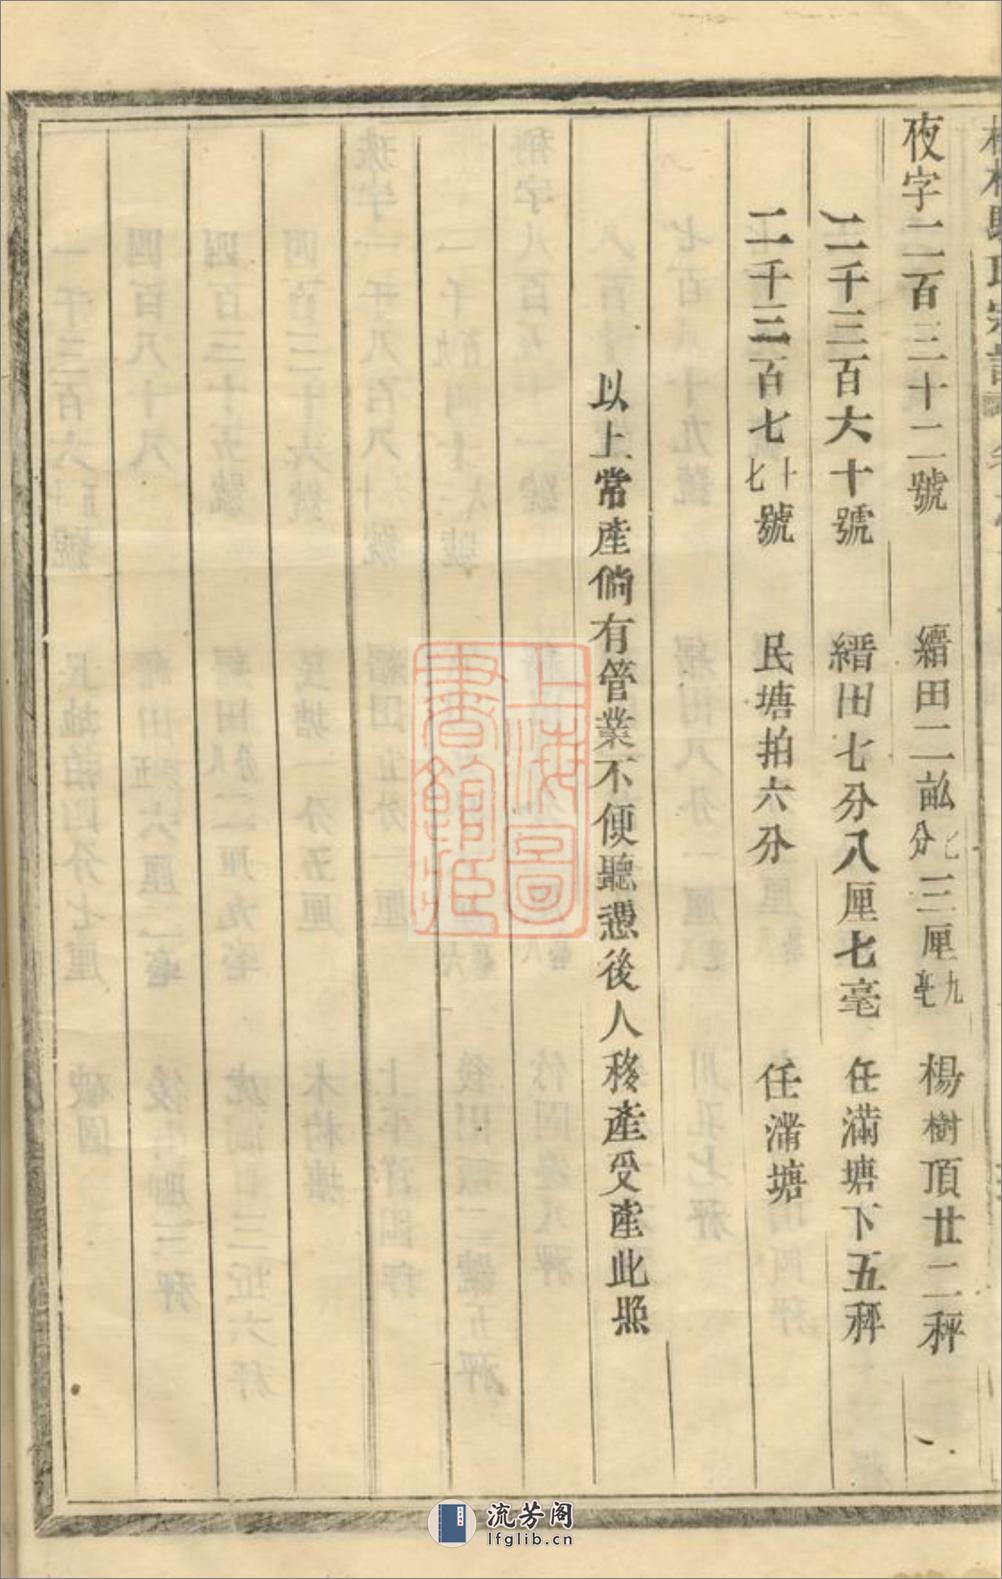 夜字二百三十二號　縉田二畝七分三厘九毫　楊樹頂廿二秤
二千三百六十號　縉田七分八厘七毫　任滿塘下五秤
二千三百七十七號　民塘拍六分　任滿塘
以上常產倘有管業不便聽憑後人移產受產此照
上海圖
書館藏
流芳阁
lfglib.cn